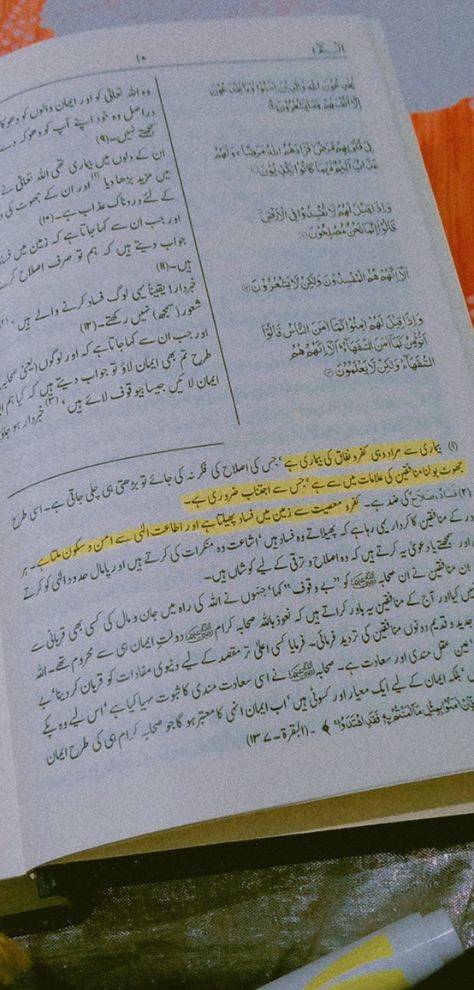 ۱۰
يُخٰدِعُوْنَ اللّٰهَ وَالَّذِيْنَ اٰمَنُوْا وَمَا يَخْدَعُوْنَ
اِلَّآ اَنْفُسَهُمْ وَمَا يَشْعُرُوْنَ
فِيْ قُلُوْبِهِمْ مَّرَضٌ فَزَادَهُمُ اللّٰهُ مَرَضًا وَلَهُمْ
عَذَابٌ اَلِيْمٌ بِمَا كَانُوْا يَكْذِبُوْنَ
وَاِذَا قِيْلَ لَهُمْ لَا تُفْسِدُوْا فِي الْاَرْضِ
قَالُوْٓا اِنَّمَا نَحْنُ مُصْلِحُوْنَ
اَلَآ اِنَّهُمْ هُمُ الْمُفْسِدُوْنَ وَلٰكِنْ لَّا يَشْعُرُوْنَ
وَاِذَا قِيْلَ لَهُمْ اٰمِنُوْا كَمَآ اٰمَنَ النَّاسُ قَالُوْٓا
اَنُؤْمِنُ كَمَآ اٰمَنَ السُّفَهَآءُ اَلَآ اِنَّهُمْ هُمُ
السُّفَهَآءُ وَلٰكِنْ لَّا يَعْلَمُوْنَ
وہ اللہ تعالیٰ کو اور ایمان والوں کو
دراصل وہ خود اپنے آپ کو دھوکہ دے
سمجھتے نہیں۔(۹)
ان کے دلوں میں بیماری تھی اللہ تعالیٰ نے
میں مزید بڑھا دیا اور ان کے جھوٹ کی
کے لئے دردناک عذاب ہے۔(۱۰)
اور جب ان سے کہا جاتا ہے کہ زمین میں
جواب دیتے ہیں کہ ہم تو صرف اصلاح
ہیں۔(۱۱)
خبردار! یقیناً یہی لوگ فساد کرنے والے ہیں،
شعور (سمجھ) نہیں رکھتے۔(۱۲)
اور جب ان سے کہا جاتا ہے کہ اور لوگوں (یعنی
طرح تم بھی ایمان لاؤ تو جواب دیتے ہیں کہ کیا ہم
ایمان لائیں جیسا بیوقوف لائے ہیں، خبردار ہو
(۱) بیماری سے مراد وہی کفر و نفاق کی بیماری ہے، جس کی اصلاح کی فکر نہ کی جائے تو بڑھتی ہی چلی جاتی ہے۔ اسی طرح
جھوٹ بولنا منافقین کی علامات میں سے ہے، جس سے اجتناب ضروری ہے۔
(۲) فَسَادٌ، صَلَاحٌ کی ضد ہے۔ کفر و معصیت سے زمین میں فساد پھیلتا ہے اور اطاعت الٰہی سے امن و سکون ملتا ہے۔ ہر
دور کے منافقین کا کردار یہی رہا ہے کہ پھیلاتے وہ فساد ہیں، اشاعت وہ منکرات کی کرتے ہیں اور پامال حدود الٰہی کو کرتے
اور سمجھتے یا دعویٰ یہ کرتے ہیں کہ وہ اصلاح و ترقی کے لیے کوشاں ہیں۔
ان منافقین نے ان صحابہ کو ”بے وقوف“ کہا، جنہوں نے اللہ کی راہ میں جان و مال کی کسی بھی قربانی سے
نہیں کیا اور آج کے منافقین یہ باور کراتے ہیں کہ نعوذ باللہ صحابہ کرام دولت ایمان ہی سے محروم تھے۔ اللہ
جدید و قدیم دونوں منافقین کی تردید فرمائی۔ فرمایا کسی اعلیٰ تر مقصد کے لیے دنیوی مفادات کو قربان کر دینا، بے
عین عقل مندی اور سعادت ہے۔ صحابہ نے اسی سعادت مندی کا ثبوت مہیا کیا ہے، اس لیے وہ پکے
بلکہ ایمان کے لیے ایک معیار اور کسوٹی ہیں، اب ایمان انہی کا معتبر ہوگا جو صحابہ کرام ہی کی طرح ایمان
اٰمَنُوْا بِمِثْلِ مَآ اٰمَنْتُمْ بِهٖ فَقَدِ اهْتَدَوْا ﴾۔ (البقرۃ۔۱۳۷)